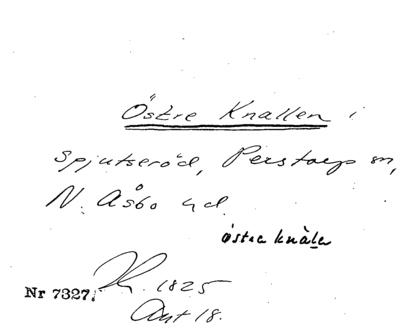 Östre Knallen i
Spjutseröd, Perstorp sn,
N. Åsbo hd.
östra knàla
Nr 7327. K. 1825
Akt 18.